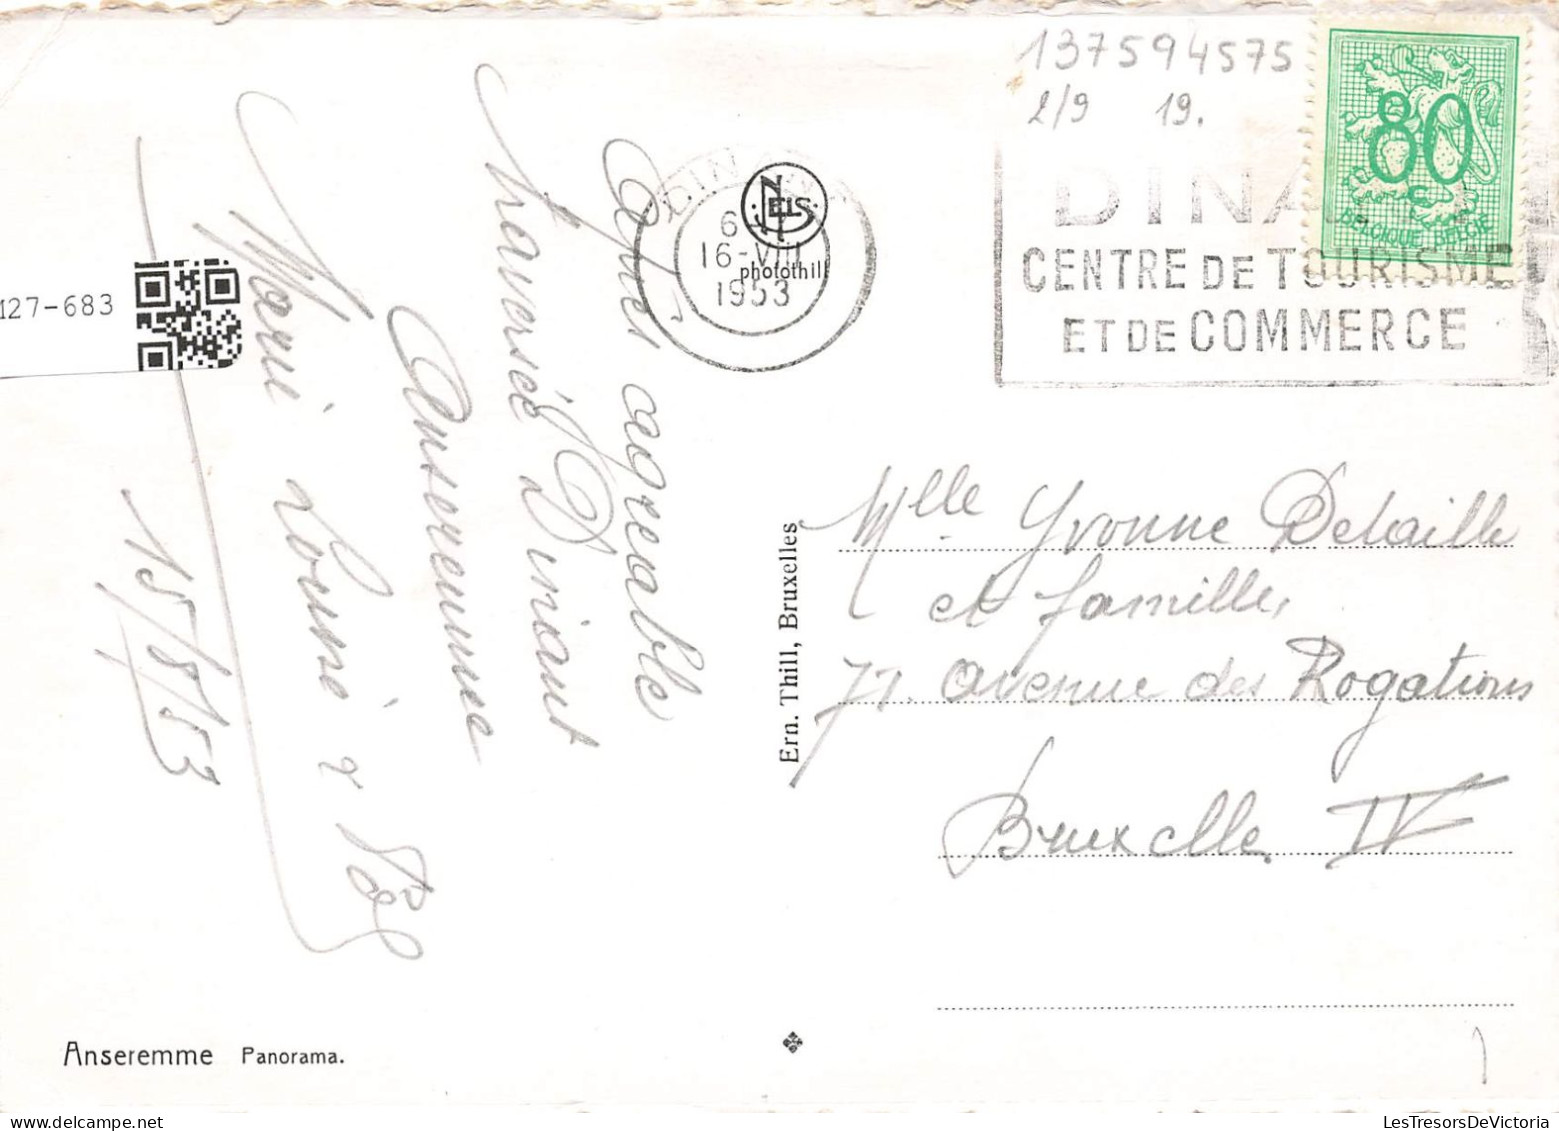 137594575
2/9 19.
80
BELGIQUE-BELGIE
DINANT
6-7
16-VIII
1953
NELS
photothill
DINANT
CENTRE DE TOURISME
ET DE COMMERCE
127-683
Après agréable
traversée Dinant
Anseremme
Marie Louise &
15/8/53
Ern. Thill, Bruxelles
Mlle. Yvonne Delaille
et famille,
77. avenue des Rogations
Bruxelle IV
Anseremme Panorama.
LesTresorsDeVictoria